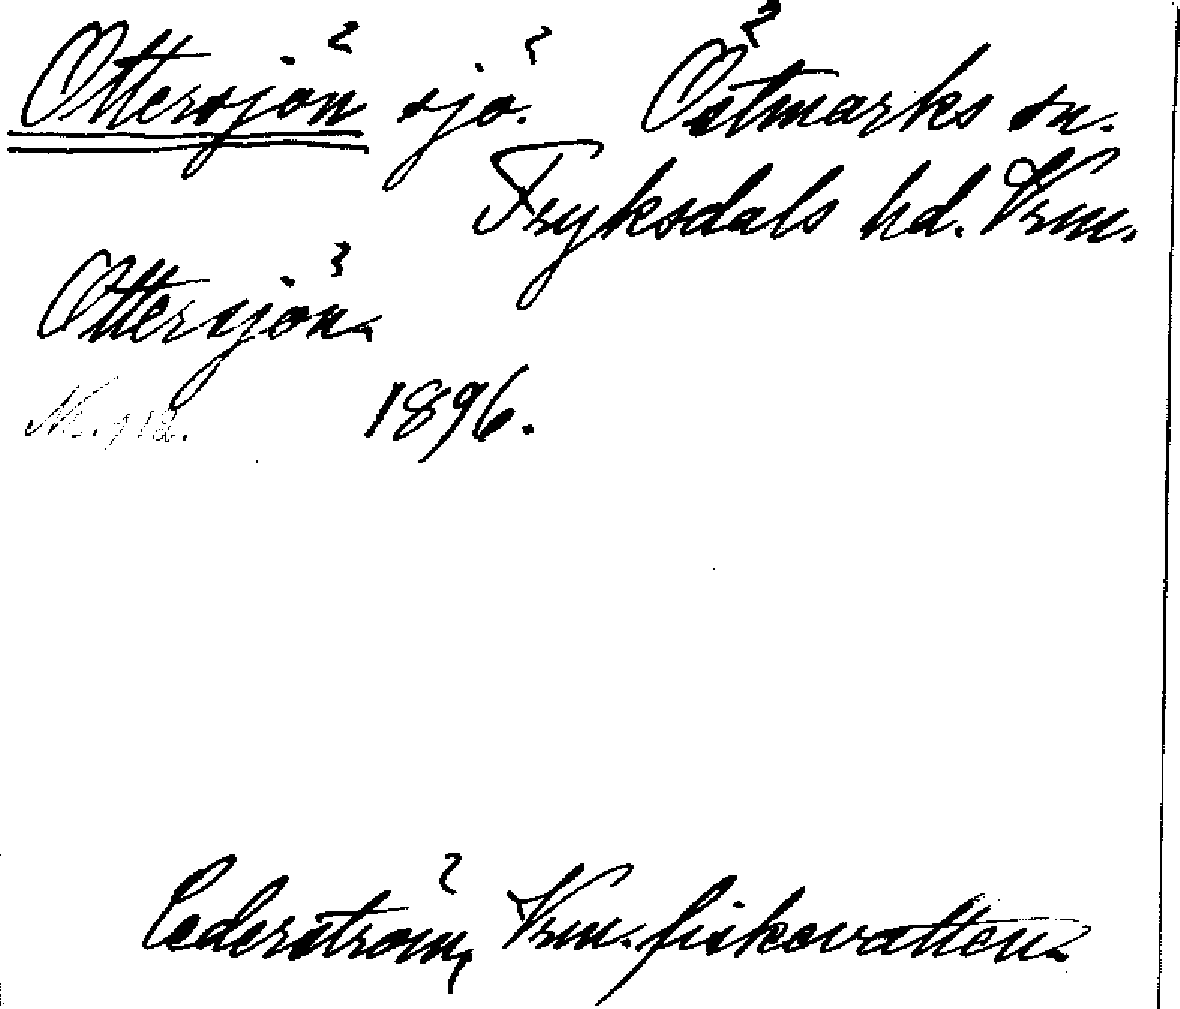 Ottersjön sjö. Östmarks sn.
Fryksdals hd. Vrm.
Ottersjön.
1896.
Cederström, Vrm. fiskevatten.